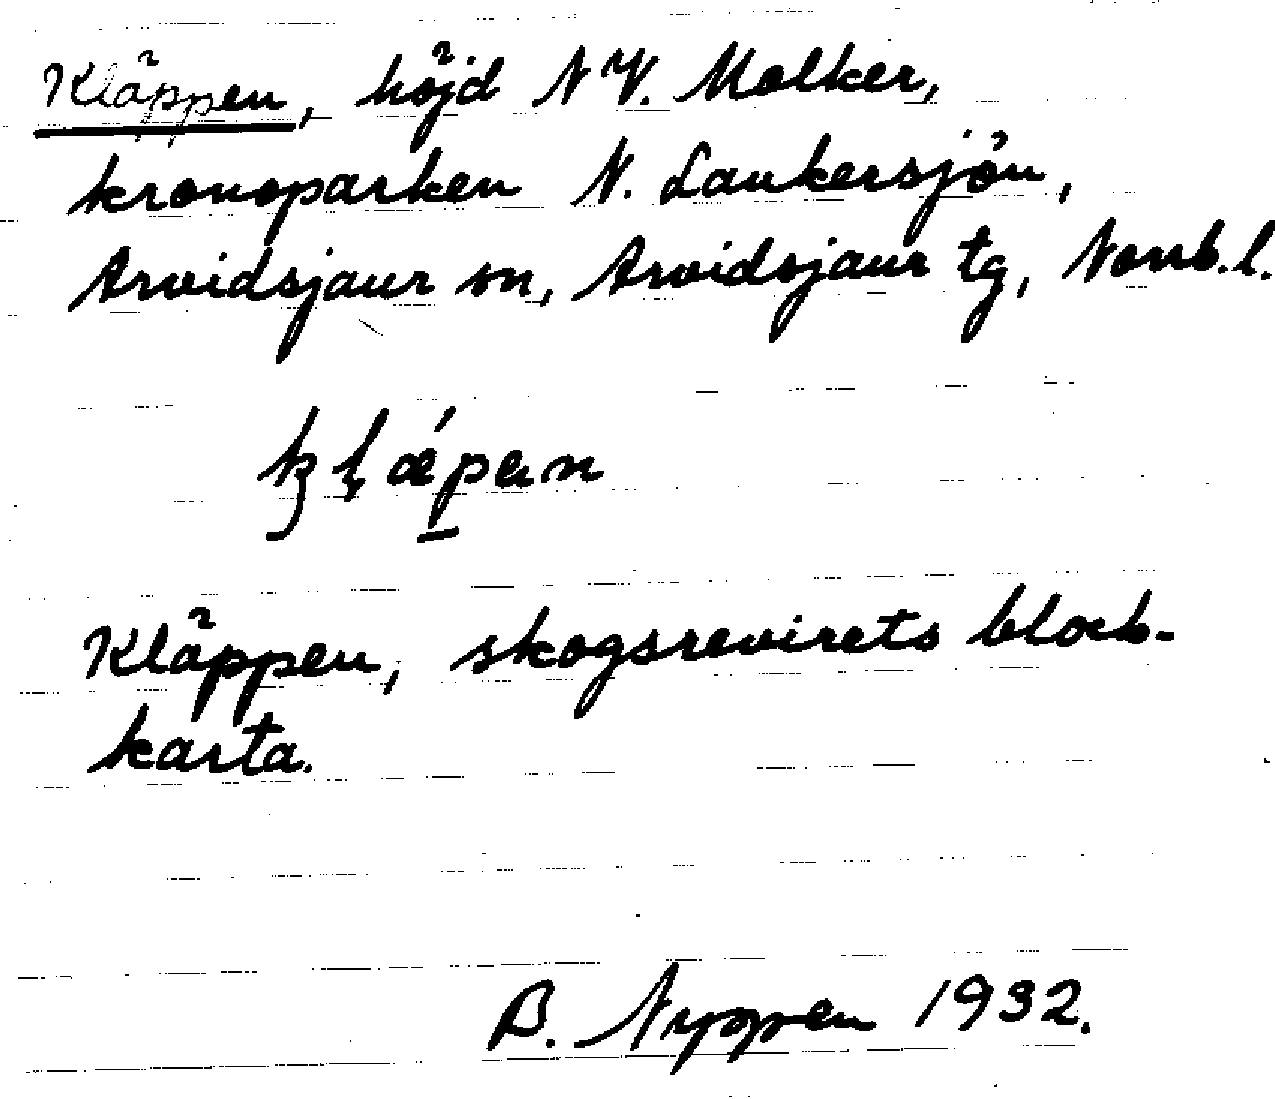 Kläppen, höjd N V. Malker,
kronoparken N. Laukersjön,
Arvidsjaur sn, Arvidsjaur tg, Norrb. l.
kl̥ǽpen
Kläppen, skogsrevirets block-
karta.
B. Nyppen 1932.